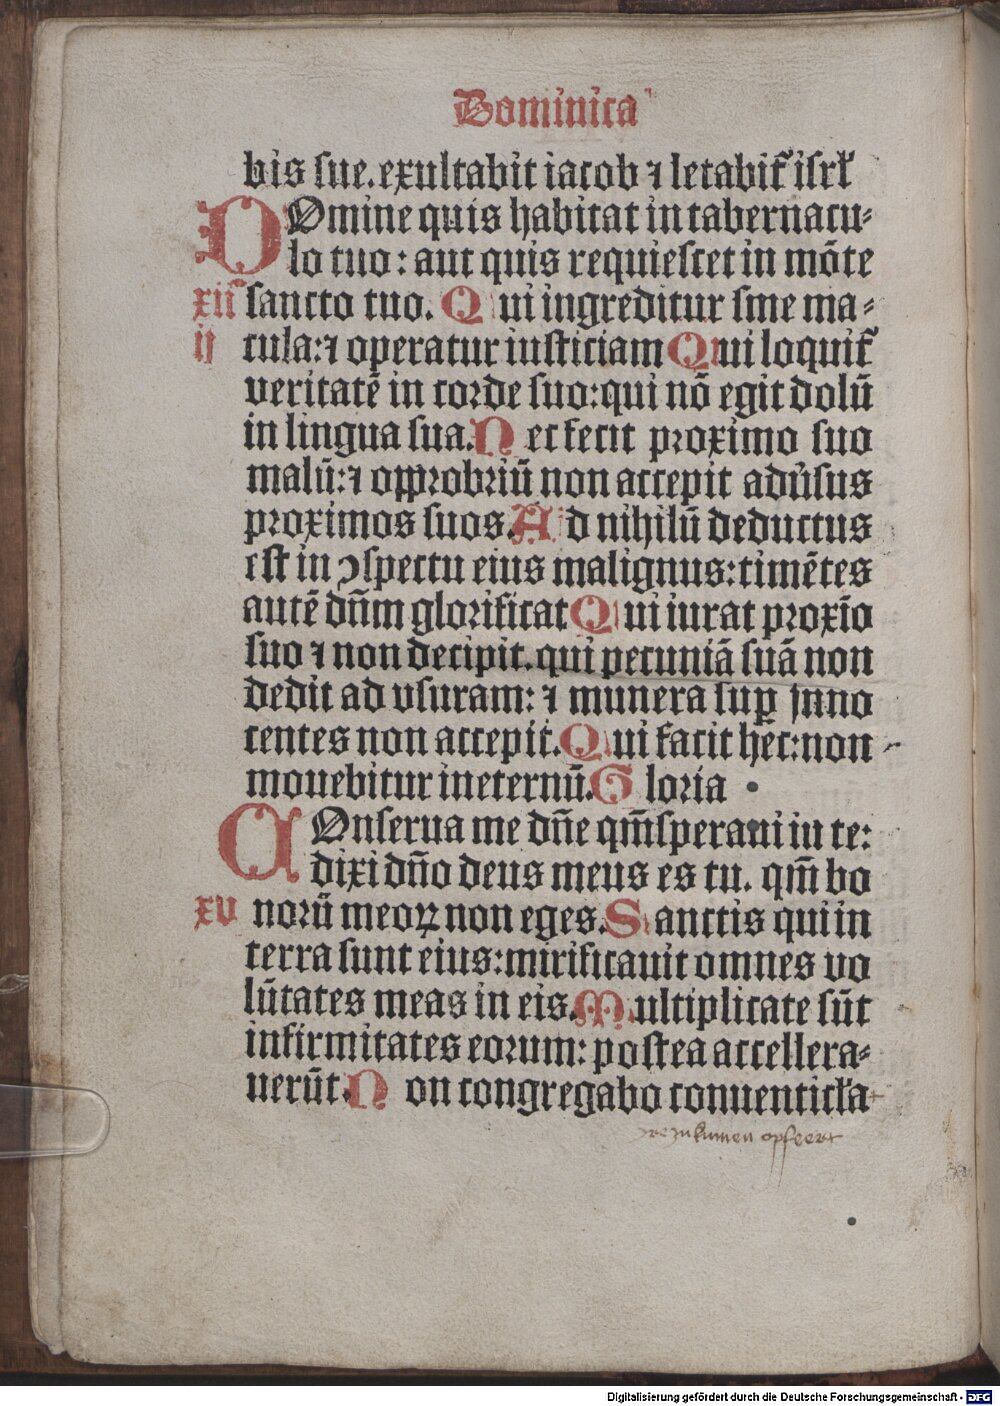 Dominica
bis sue. exultabit iacob ⁊ letabit᷑ isrl̄
DOmine quis habitat in tabernacu-
lo tuo: aut quis requiescet in mōte
xii sancto tuo. Qui ingreditur sine ma-
ij cula: ⁊ operatur iusticiam Qui loquit᷑
veritatē in corde suo: qui nō egit dolū
in lingua sua. Nec fecit proximo suo
malū: ⁊ opprobriū non accepit adu̾sus
proximos suos. Ad nihilū deductus
est in ↄspectu eius malignus: timētes
autē dn̄m glorificat Qui iurat proxīo
suo ⁊ non decipit. qui pecuniā suā non
dedit ad vsuram: ⁊ munera sup̲ inno
centes non accepit. Qui facit hec: non
mouebitur ineternū. Gloria
COnserua me dn̄e qm̄ speraui in te:
dixi dn̄o deus meus es tu. qm̄ bo
xv norū meoꝝ non eges. Sanctis qui in
terra sunt eius: mirificauit omnes vo
lūtates meas in eis. Multiplicate sūt
infirmitates eorum: postea accellera-
uerūt. Non congregabo conuenticl̓a
Digitalisierung gefördert durch die Deutsche Forschungsgemeinschaft - DFG